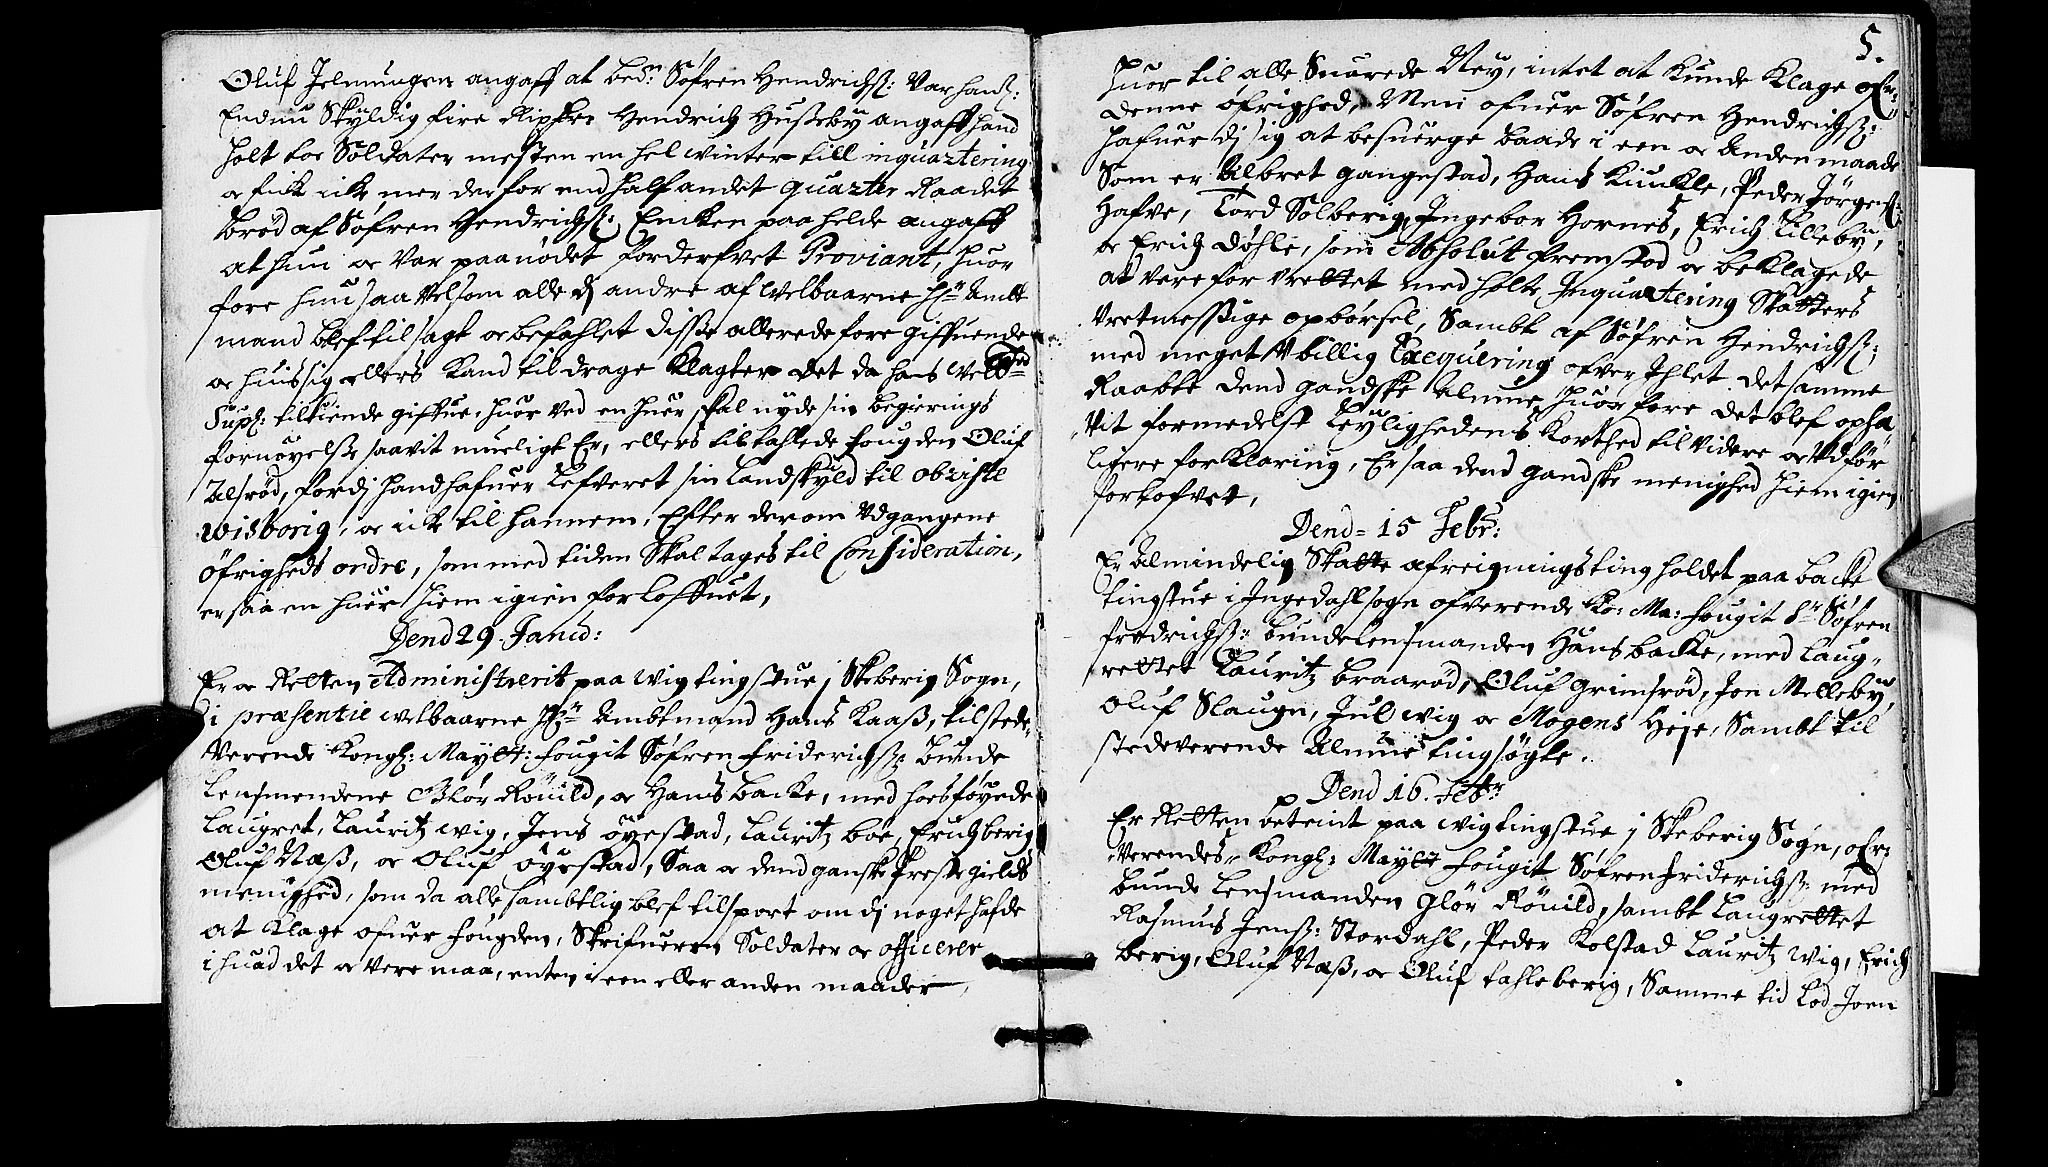 Oluf Jelmungen angaff at bedn: Söfren Hendrichß: Var hanß:
Endnu Skyldig fire Ripster Hendrich Husseby angaff hand
holt toe Soldater mesten en hel winter till inquartering
oc fick icke mer derfor end half andet quarter Raadet
bröd af Söfren Hendrichß: Encken paa helde angaff
at hun oc Var paanödet forderfvet Proviant, huor
fore hun saa Velsom alle dj andre af Welbaarne Hr: Ambt
mand blef til sagt oc befahlet disse allerede fore giffuende
oc huis sig ellers Kand til drage Klagter det da hans Velb:
Supl: tilkiende giffue, huor Ved en huer skal nyde sin begierings
fornöyelse saavit mueligt Er, ellers tiltahlede fougden Oluf
Ulsröd, fordj hand hafuer Lefveret sin Landskyld til obriste
Wisborig, oc icke til hannem, Efter derom Udgangene
Öfrigheds ordre, som med tiden Skal tages til Consideration,
er saa en huer hiem igien forloffuet,
Dend 29. Janu:
Er oc Retten Administrerit paa Wig tingstue j Skeberig Sogn,
i præsentie welbaarne Hr: Ambtmand Hans Kaaß, tilstede
Verende Kongl: Maytt: fougit Söfren Friderichß: bunde
Lensmendene Glör Röuild, oc Hans backe, med hosföyede
Laugret, Lauritz wig, Jens öyestad, Lauritz böe, Erich berig
Oluf Næß, oc Oluf öyestad, Saa oc dend ganske Preste gields
menighed, som da alle sambtlig blef tilsport om dj noget hafde
at Klage ofuer fougden, Skrifueren Soldater oc officerer
i huad det oc Vere maa, enten i een eller anden maader,
5.
huor til alle Suarede Ney, intet at Kunde Klage ofr:
denne öfrighed, Men ofuer Söfren Hendrichß:
hafuer dj sig at besuerge baade i een oc Anden maade
Som er Albret gangestad, Hans Kunckle, Peder Jörgenß:
Hafve, Tord Solberig, Ingebor Hornes, Erich Lilleby,
oc Erich döhle, som Absolut fremstod oc beklagede
at Vere for Urettet med holte Inquartering Skatters
Uretmessige opbörsel, Sambt af Söfren Hendrichß:
med meget Ubillig Exequering ofver Ihlet det samme
Raabte dend gandske Almue, huor fore det blef opsa
Vit formedelst Leylighedens Korthed til Videre oc Udför
ligere forklaring, Er saa dend gandske menighed hiem igien
forlofvet,
Dend= 15 Febr:
Er Almindelig Skatte afreignings ting holdet paa backe
tingstue i Ingedahl sogn ofverende Ko: Ma: fougit Sr Söfren
fredrichß: bundelensmanden Hans backe, med Laug-
rettet Lauritz braaröd, Oluf grimsröd, Jon Melleby,
Oluf Slaugn, Jul wig oc Mogens Heje, Sambt til
stedeverende Almue tingsögte.
Dend 16. Febr
Er Retten beteint paa wig tingstue j Skeberig Sogn, ofr:
Verendes Kongl: Maytt fougit Söfren Friderichß: med
bunde Lensmanden Glör Röuild, sambt Laugrettet
Rasmus Jenß: Stordahl, Peder Kolstad Lauritz wig, Erich
berig, Oluf Næß, oc Oluf kahleberig, Samme tid Lod Joen